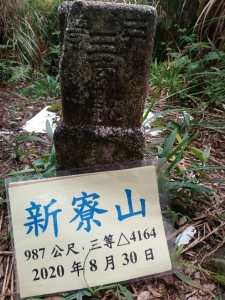 三等
新寮山
987公尺·三等△4164
2020年8月30日